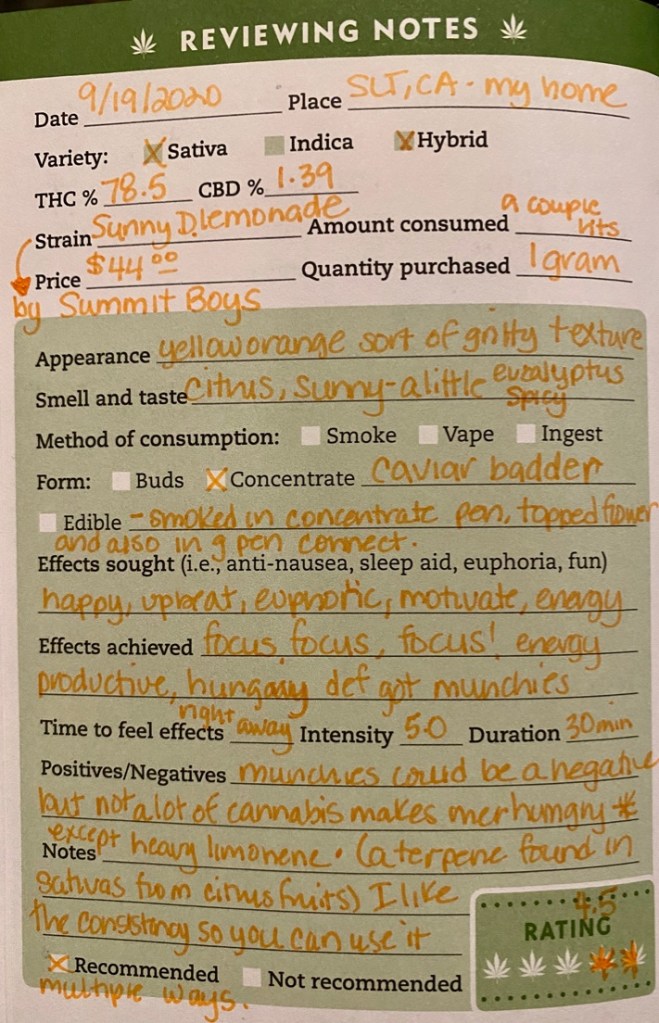 REVIEWING NOTES
Date 9/19/2020 Place SLT, CA - my home
Variety: Sativa Indica Hybrid
THC % 78.5 CBD % 1.39
Strain Sunny D. lemonade Amount consumed a couple hits
Price $44.00 Quantity purchased 1 gram
by Summit Boys
Appearance yellow orange sort of gritty texture
Smell and taste Citrus, sunny - a little eucalyptus
spicy
Method of consumption: Smoke Vape Ingest
Form: Buds Concentrate caviar badder
Edible - smoked in concentrate pen, topped flower
and also in g pen connect.
Effects sought (i.e., anti-nausea, sleep aid, euphoria, fun)
happy, upbeat, euphoric, motivate, energy
Effects achieved focus, focus, focus! energy
productive, hungary def got munchies
Time to feel effects right away Intensity 5.0 Duration 30 min
Positives/Negatives munchies could be a negative
but not a lot of cannabis makes me hungry *
Notes except heavy limonene. (a terpene found in
sativas from citrus fruits) I like
the consistancy so you can use it
Recommended Not recommended
multiple ways.
4.5
RATING